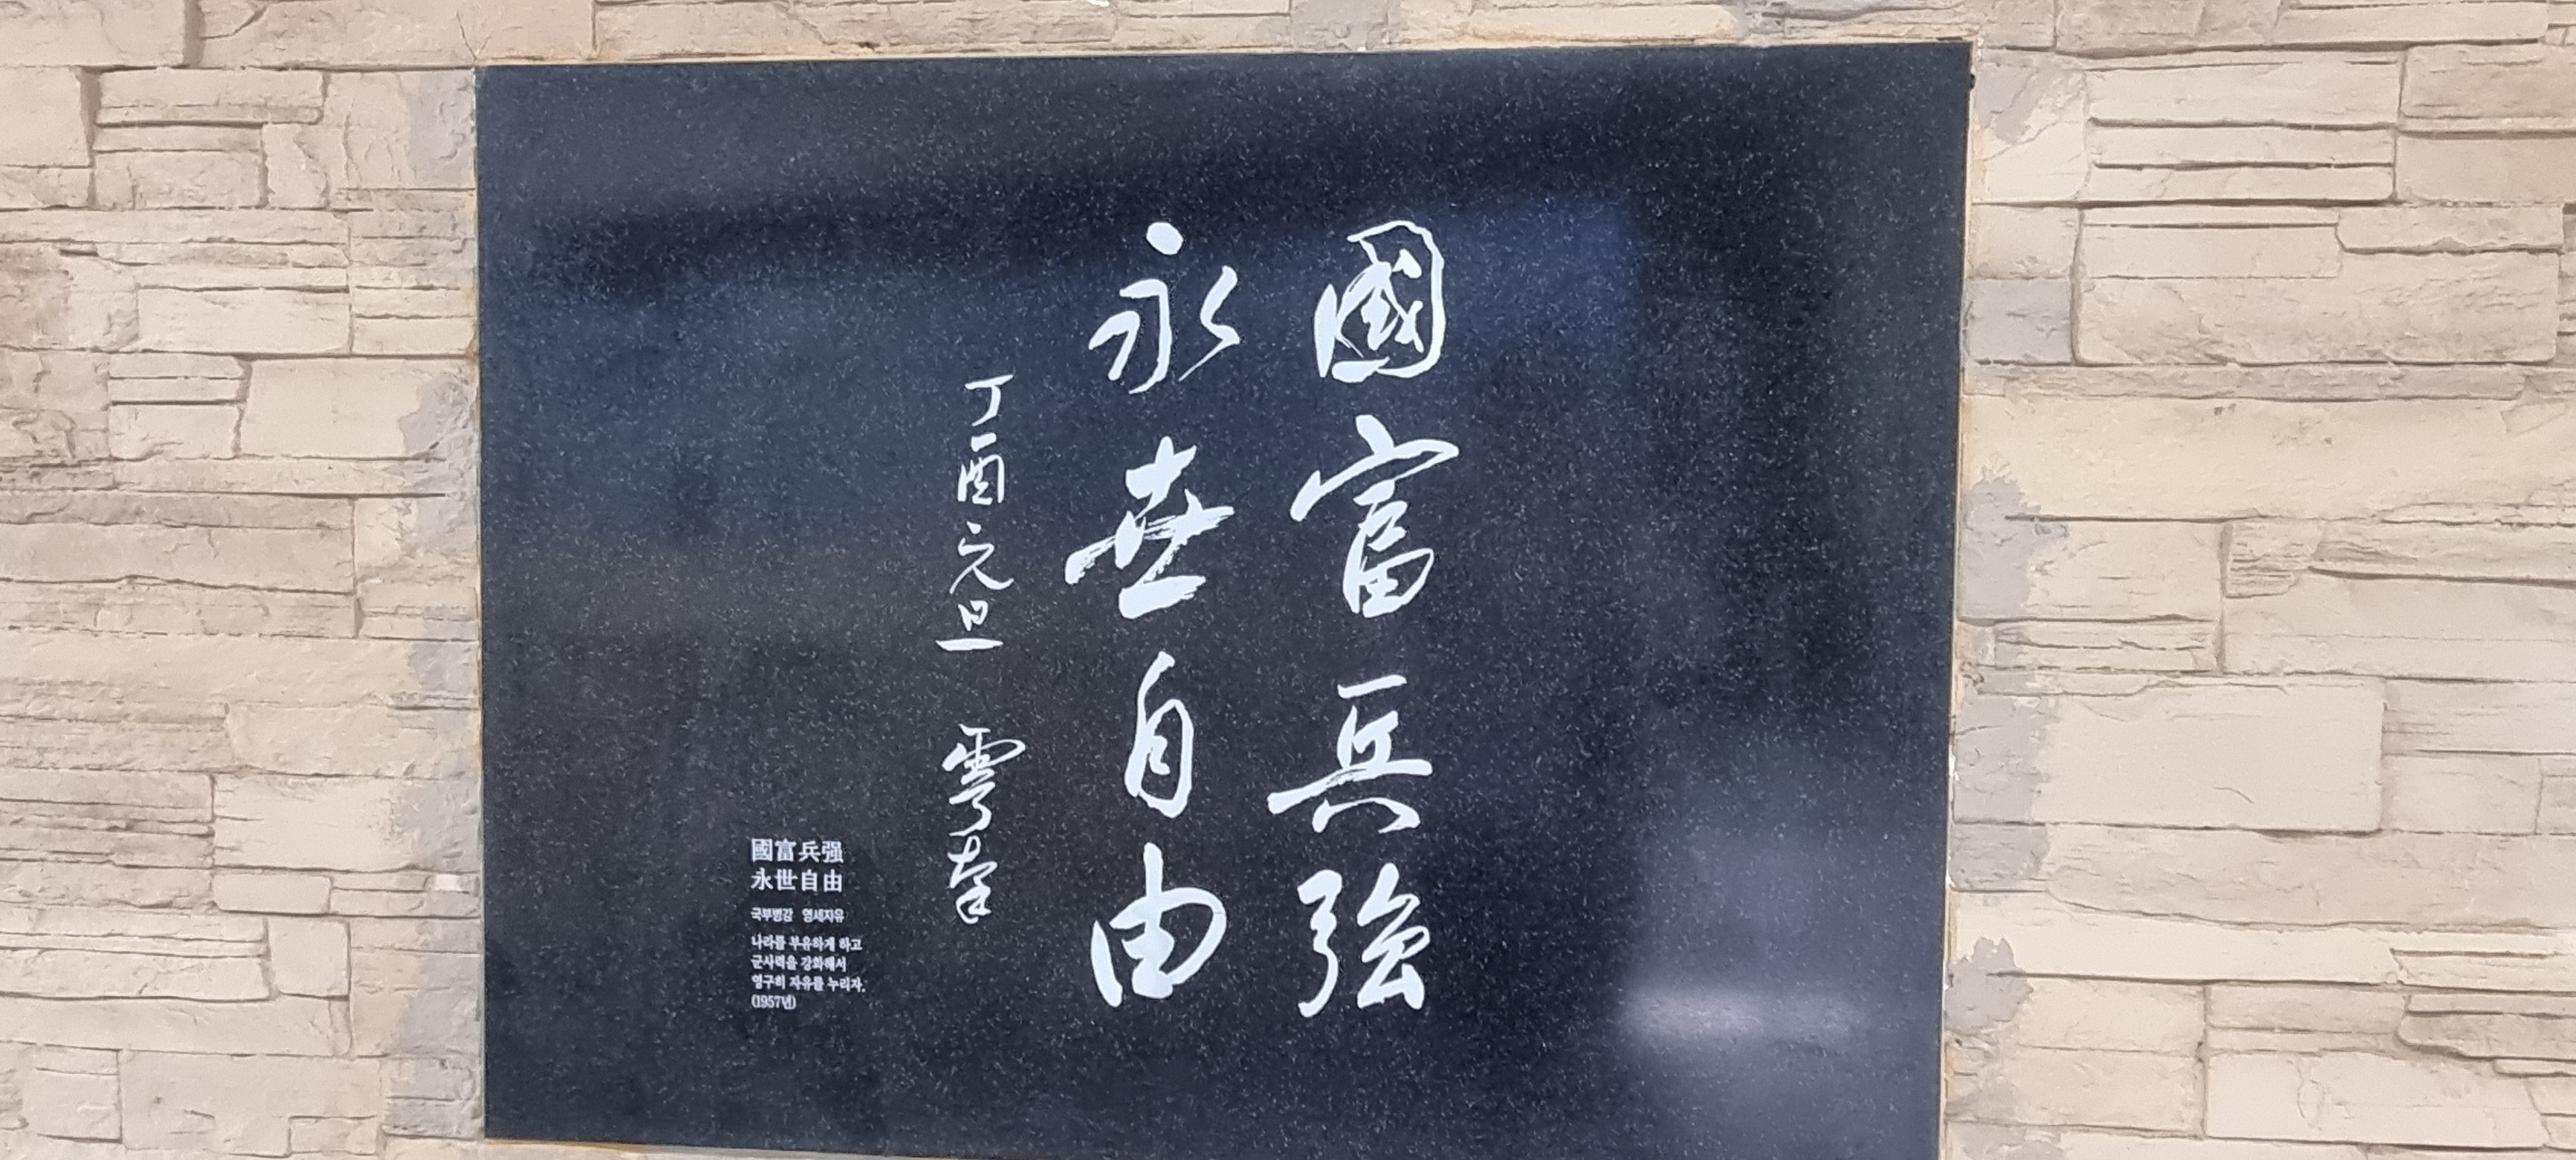 國富兵強
永世自由
丁酉元旦 雩南
國富兵强
永世自由
국부병강 영세자유
나라를 부유하게 하고
군사력을 강화해서
영구히 자유를 누리자.
(1957년)